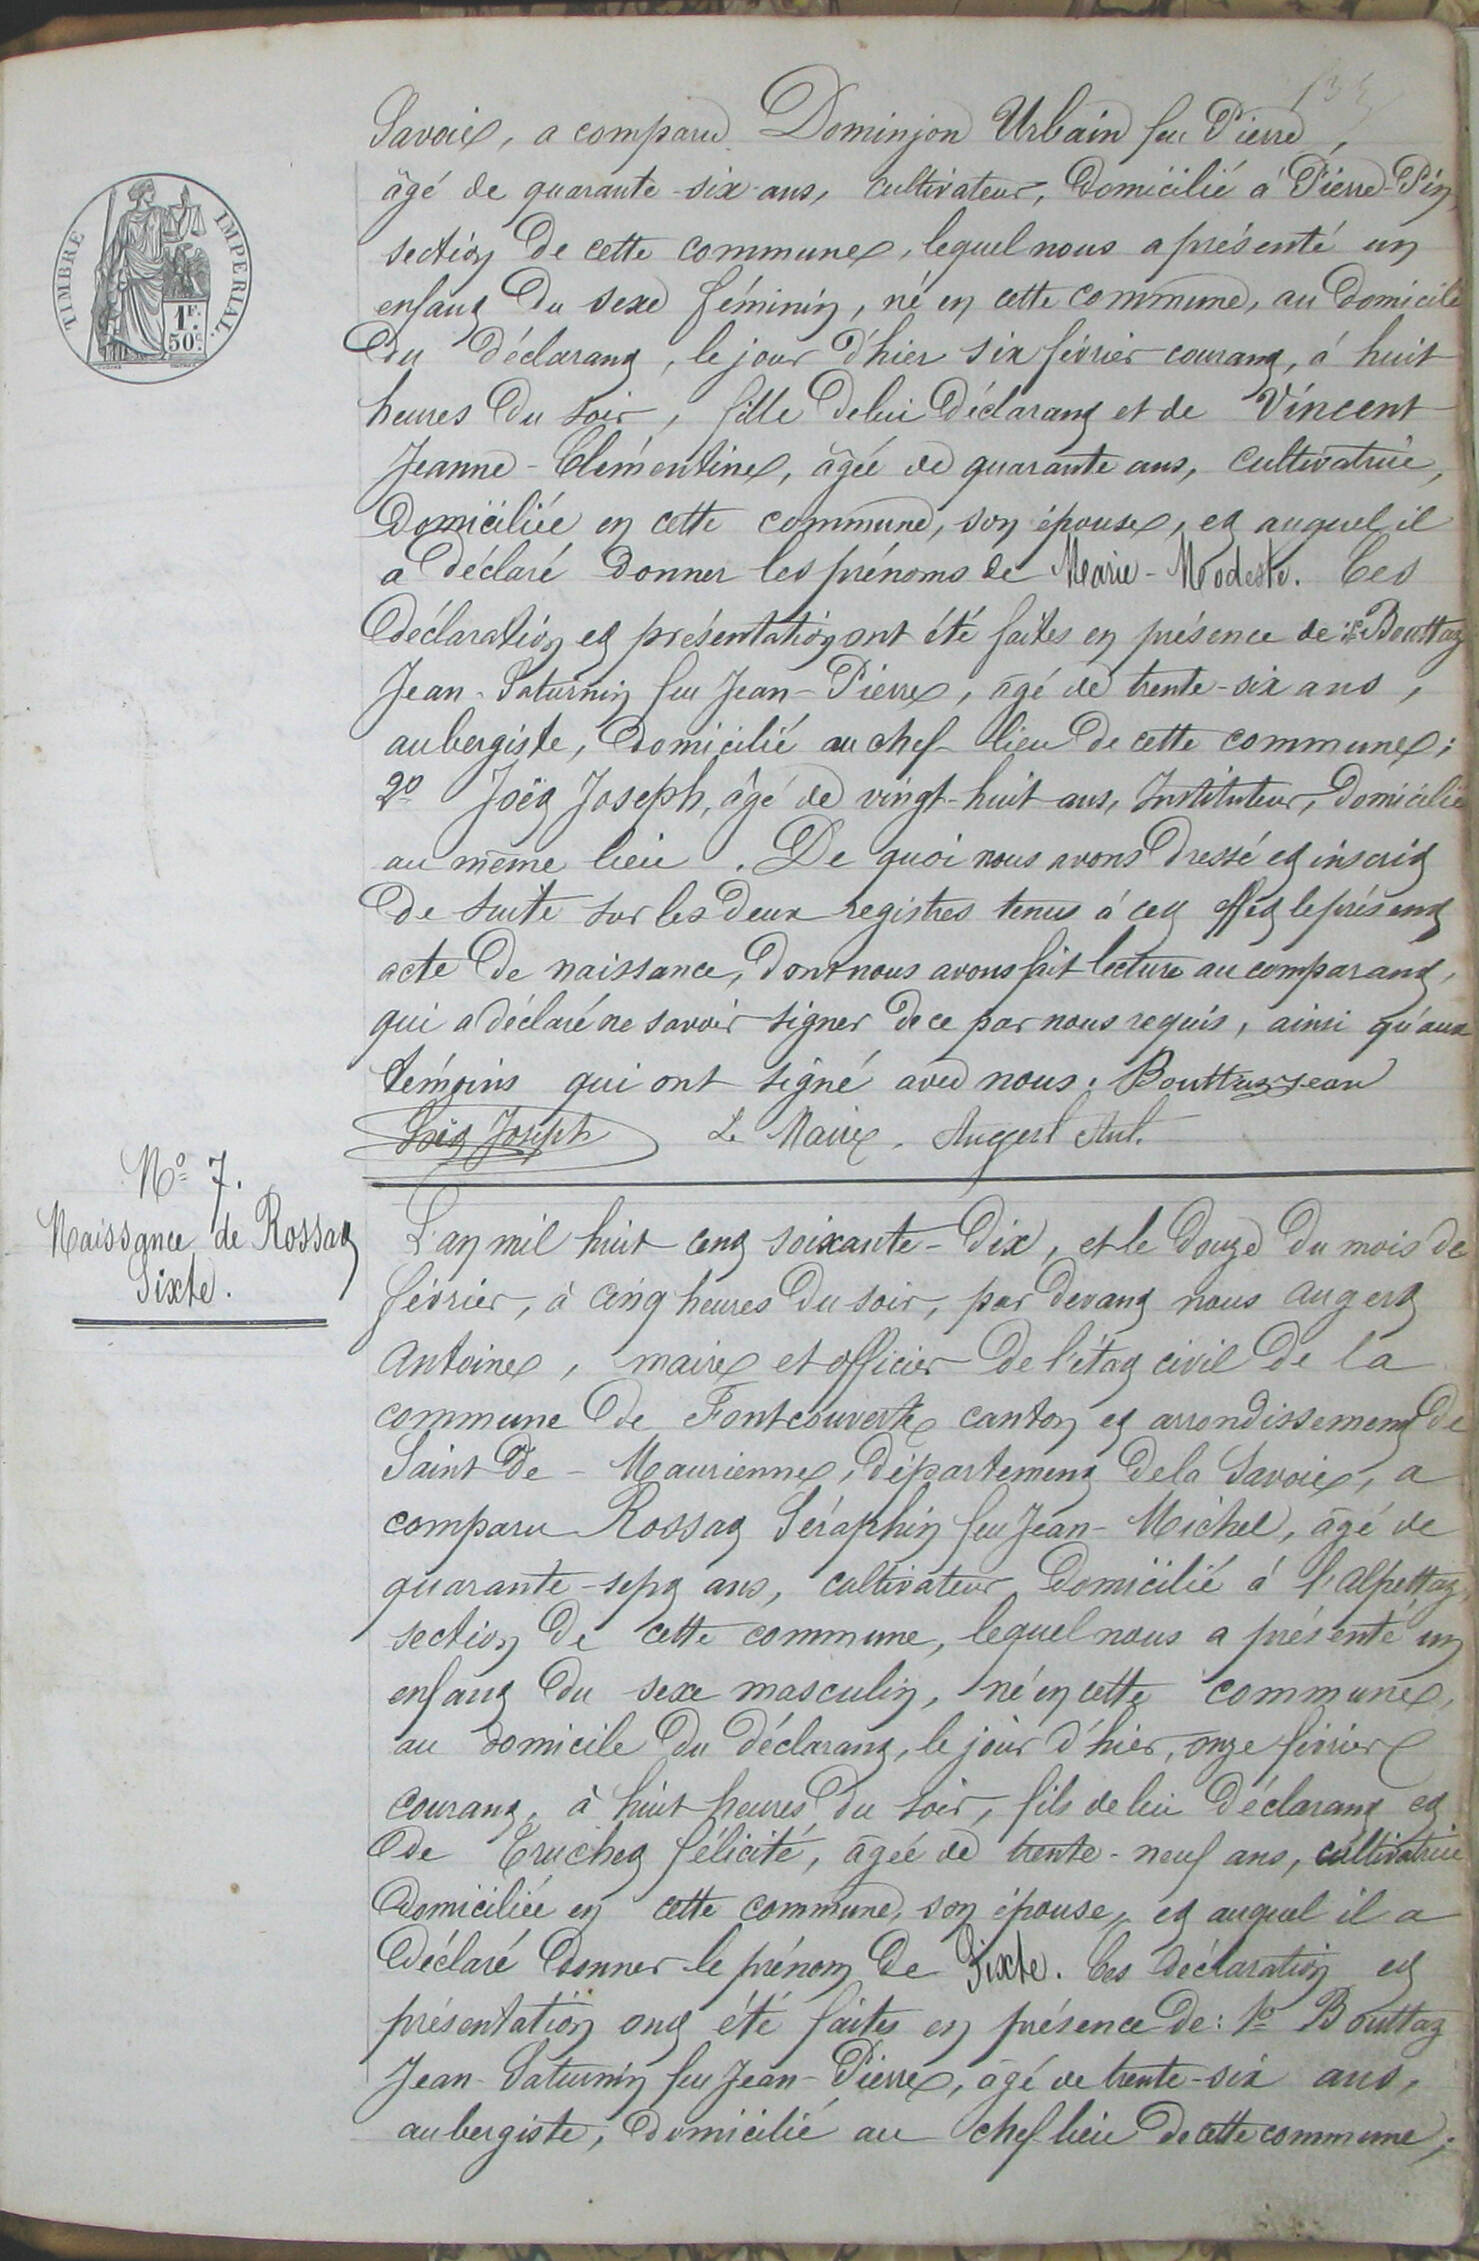 Savoie, a comparu Dominjon Urbain feu Pierre,
âgé de quarante-six ans, cultivateur, domicilié à Pierre-Pin,
TIMBRE IMPERIAL.
1F.
50c.
section de cette commune, lequel nous a présenté un
enfant du sexe féminin, né en cette commune, au domicile
du déclarant, le jour d'hier six février courant, à huit
heures du soir, fille de lui déclarant et de Vincent
Jeanne-Clémentine, âgée de quarante ans, cultivatrice,
domiciliée en cette commune, son épouse, et auquel il
a déclaré donner les prénoms de Marie-Modeste. Ces
déclaration et présentation ont été faites en présence de: 1º Bouttaz
Jean-Saturnin feu Jean-Pierre, âgé de trente-six ans,
aubergiste, domicilié au chef-lieu de cette commune;
2º Joët Joseph, âgé de vingt-huit ans, Instituteur, domicilié
au même lieu. De quoi nous avons dressé et inscrit
de suite sur les deux registres tenus à cet effet le présent
acte de naissance, dont nous avons fait lecture au comparant,
qui a déclaré ne savoir signer de ce par nous requis, ainsi qu'aux
témoins qui ont signé avec nous. Bouttaz Jean
Joseph Le Maire, Augert Ant.
Nº 7.
Naissance de Rossat
Sixte.
L'an mil huit cent soixante-dix, et le douze du mois de
février, à cinq heures du soir, par devant nous Augert
Antoine, maire et officier de l'état civil de la
commune de Fontcouverte canton et arrondissement de
Saint de-Maurienne, département de la Savoie, a
comparu Rossat Séraphin feu Jean-Michel, âgé de
quarante-sept ans, cultivateur domicilié à l'Alpettaz,
section de cette commune, lequel nous a présenté un
enfant du sexe masculin, né en cette commune,
au domicile du déclarant, le jour d'hier, onze février
courant, à huit heures du soir, fils de lui déclarant et
de Truchet félicité, âgée de trente-neuf ans, cultivatrice
domiciliée en cette commune, son épouse, et auquel il a
déclaré donner le prénom de Sixte. Ces déclaration et
présentation ont été faites en présence de: 1º Bouttaz
Jean-Saturnin feu Jean-Pierre, âgé de trente-six ans,
aubergiste, domicilié au chef lieu de cette commune;